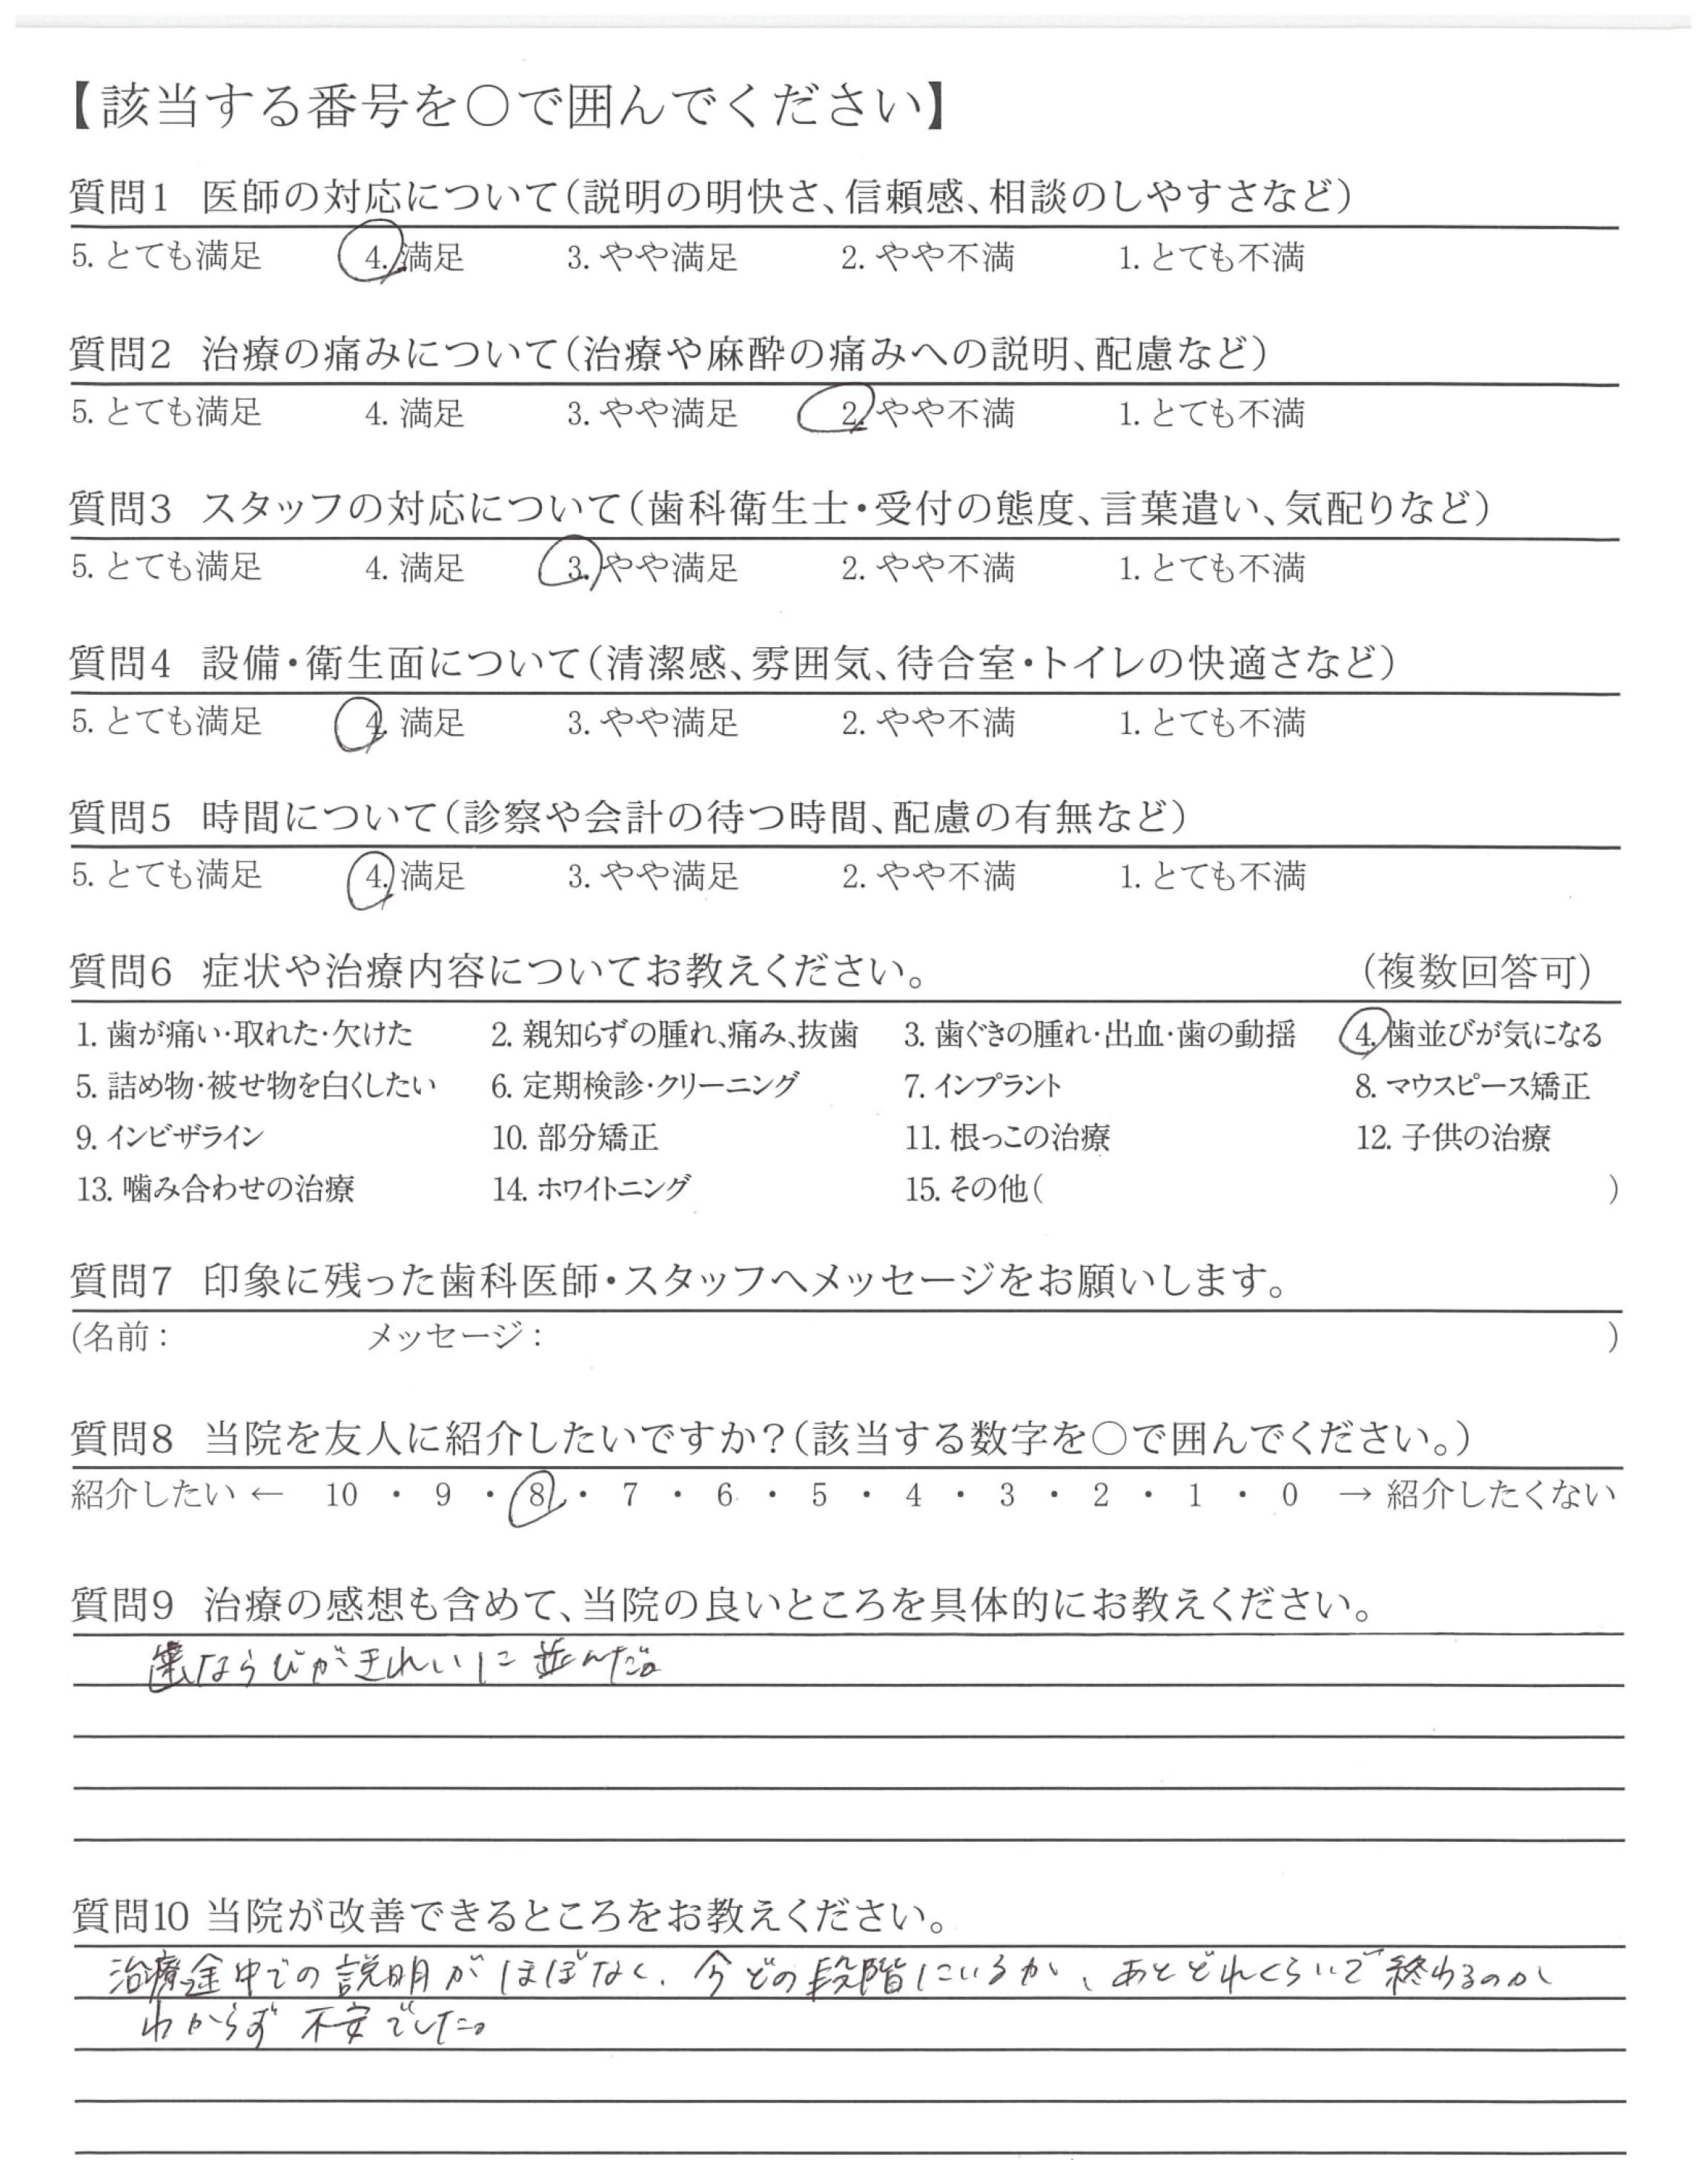 【該当する番号を○で囲んでください】
質問1 医師の対応について(説明の明快さ、信頼感、相談のしやすさなど)
5. とても満足 4. 満足 3. やや満足 2. やや不満 1. とても不満
質問2 治療の痛みについて(治療や麻酔の痛みへの説明、配慮など)
5. とても満足 4. 満足 3. やや満足 2. やや不満 1. とても不満
質問3 スタッフの対応について(歯科衛生士・受付の態度、言葉遣い、気配りなど)
5. とても満足 4. 満足 3. やや満足 2. やや不満 1. とても不満
質問4 設備・衛生面について(清潔感、雰囲気、待合室・トイレの快適さなど)
5. とても満足 4. 満足 3. やや満足 2. やや不満 1. とても不満
質問5 時間について(診察や会計の待つ時間、配慮の有無など)
5. とても満足 4. 満足 3. やや満足 2. やや不満 1. とても不満
質問6 症状や治療内容についてお教えください。 (複数回答可)
1. 歯が痛い・取れた・欠けた 2. 親知らずの腫れ、痛み、抜歯 3. 歯ぐきの腫れ・出血・歯の動揺 4. 歯並びが気になる
5. 詰め物・被せ物を白くしたい 6. 定期検診・クリーニング 7. インプラント 8. マウスピース矯正
9. インビザライン 10. 部分矯正 11. 根っこの治療 12. 子供の治療
13. 噛み合わせの治療 14. ホワイトニング 15. その他( )
質問7 印象に残った歯科医師・スタッフへメッセージをお願いします。
(名前: メッセージ: )
質問8 当院を友人に紹介したいですか?(該当する数字を○で囲んでください。)
紹介したい ← 10 ・ 9 ・ 8 ・ 7 ・ 6 ・ 5 ・ 4 ・ 3 ・ 2 ・ 1 ・ 0 → 紹介したくない
質問9 治療の感想も含めて、当院の良いところを具体的にお教えください。
歯ならびがきれいに並んだ。
質問10 当院が改善できるところをお教えください。
治療途中での説明がほぼなく、今どの段階にいるか、あとどれくらいで終わるのか
わからず不安でした。